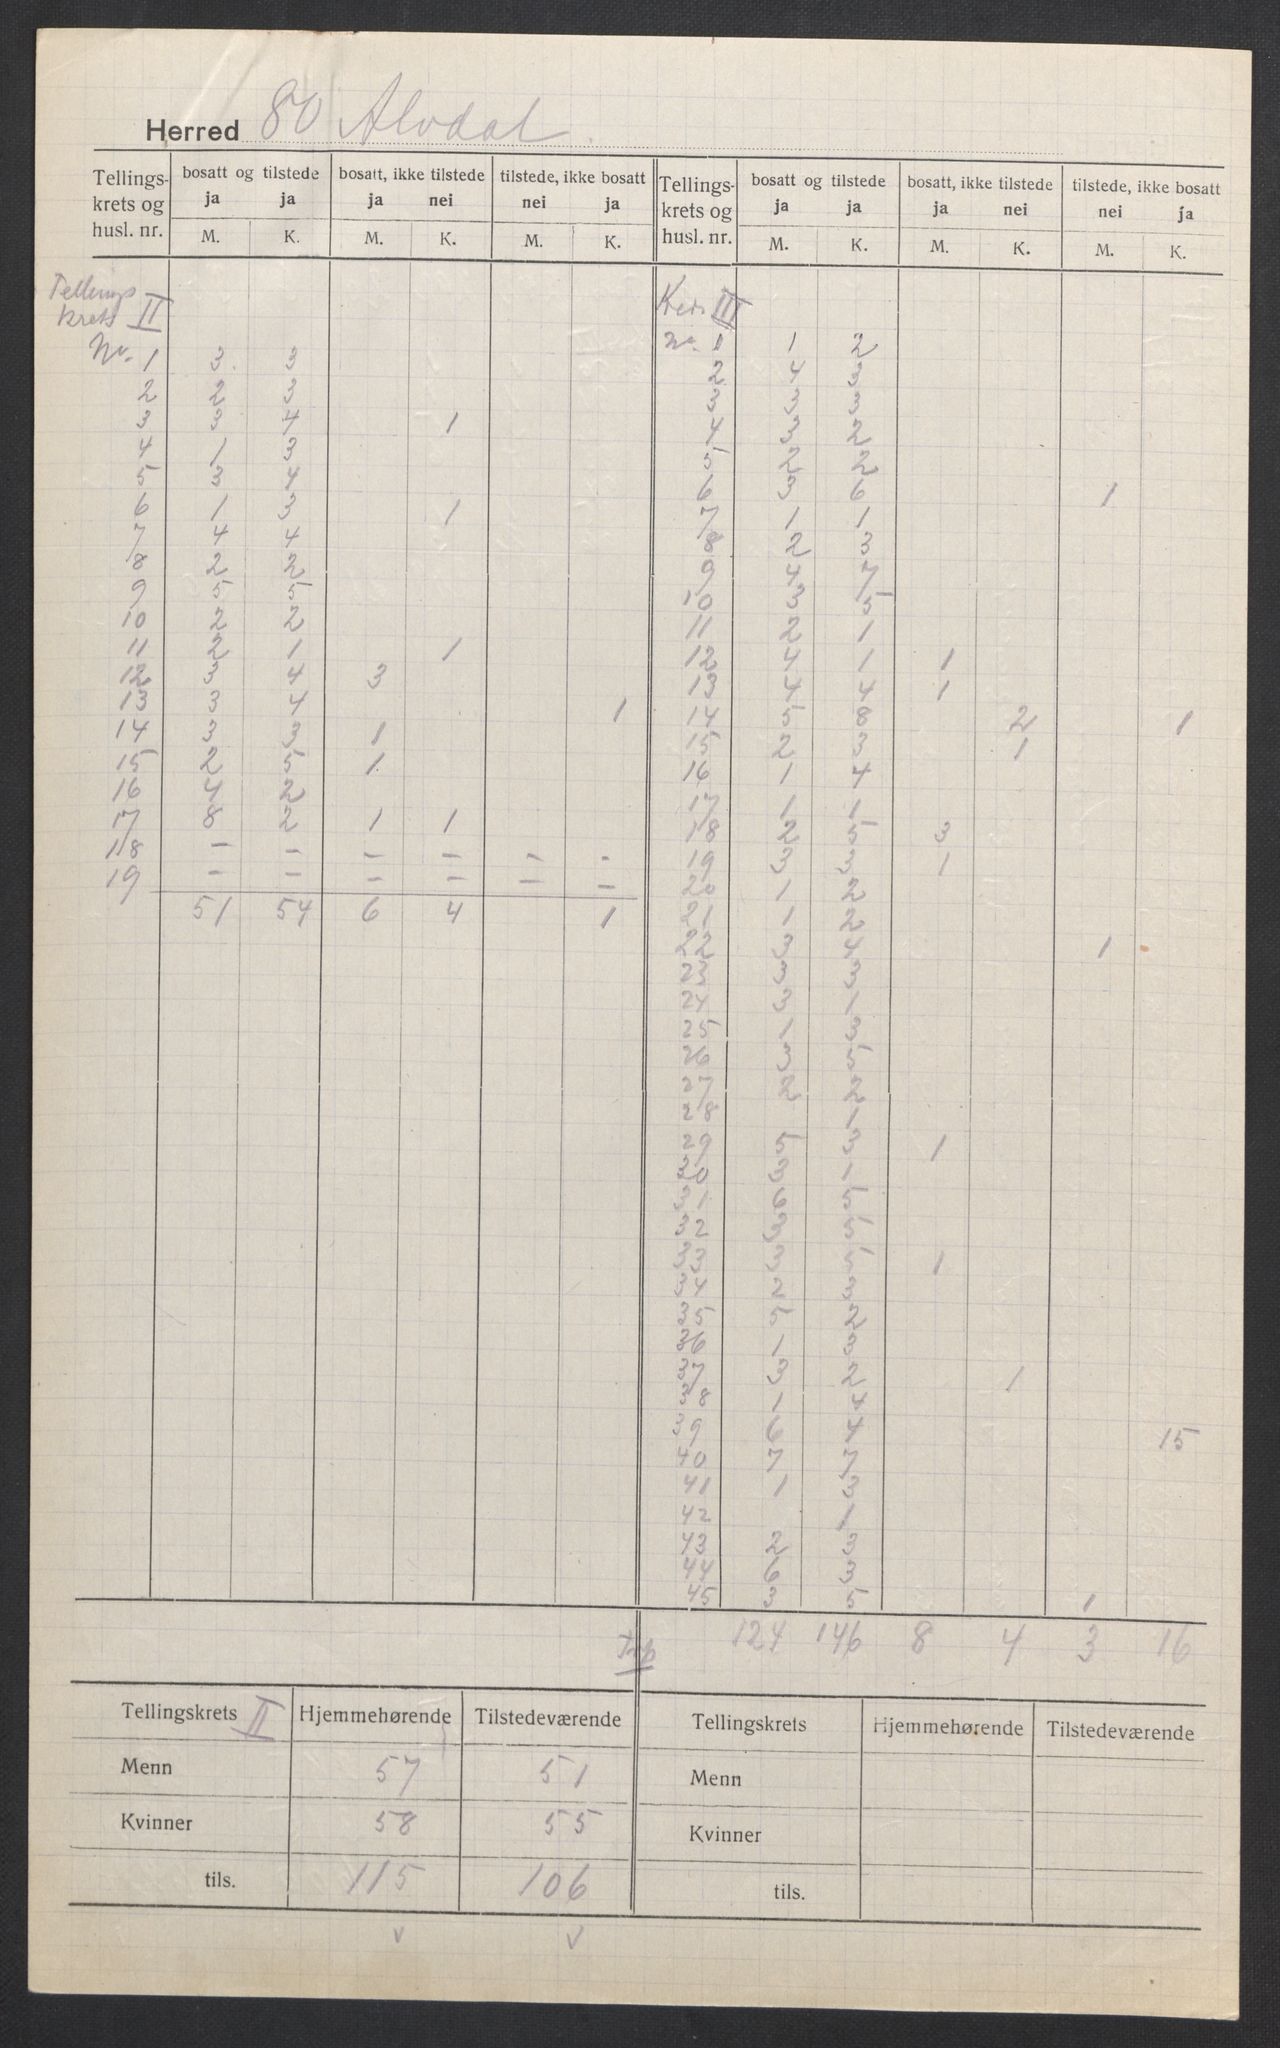 Herred 80 Alvdal
Tellings-krets og husl. nr. | bosatt og tilstede ja ja M. K. | bosatt, ikke tilstede ja nei M. K. | tilstede, ikke bosatt nei ja M. K.
Tellings-krets og husl. nr. | bosatt og tilstede ja ja M. K. | bosatt, ikke tilstede ja nei M. K. | tilstede, ikke bosatt nei ja M. K.
Tellings
krets II
Nr. 1 3 3
2 2 3
3 3 4 1
4 1 3
5 3 4
6 1 3 1
7 4 4
8 2 2
9 5 5
10 2 2
11 2 1 1
12 3 4 3
13 3 4 1
14 3 3 1
15 2 5 1
16 4 2
17 8 2 1 1
18 - - - - - -
19 - - - - - -
51 54 6 4 1
Krets III
Nr. 1 1 2
2 4 3
3 3 3
4 3 2
5 2 2
6 3 6 1
7 1 1
8 2 3
9 4 7
10 3 5
11 2 1
12 4 1 1
13 4 4 1
14 5 8 2 1
15 2 3 1
16 1 4
17 1 1
18 2 5 3
19 3 3 1
20 1 2
21 1 2
22 3 4 1
23 3 3
24 3 1
25 1 3
26 3 5
27 2 2
28 1
29 5 3 1
30 3 1
31 6 5
32 3 5
33 3 5 1
34 2 3
35 5 2
36 1 3
37 3 2 1
38 1 4
39 6 4 15
40 7 7
41 1 3
42 1
43 2 3
44 6 3
45 3 5 1
124 146 8 4 3 16
Tellingskrets II | Hjemmehørende | Tilstedeværende
Menn 57 51
Kvinner 58 55
tils. 115 106
v v
Tellingskrets | Hjemmehørende | Tilstedeværende
Menn
Kvinner
tils.